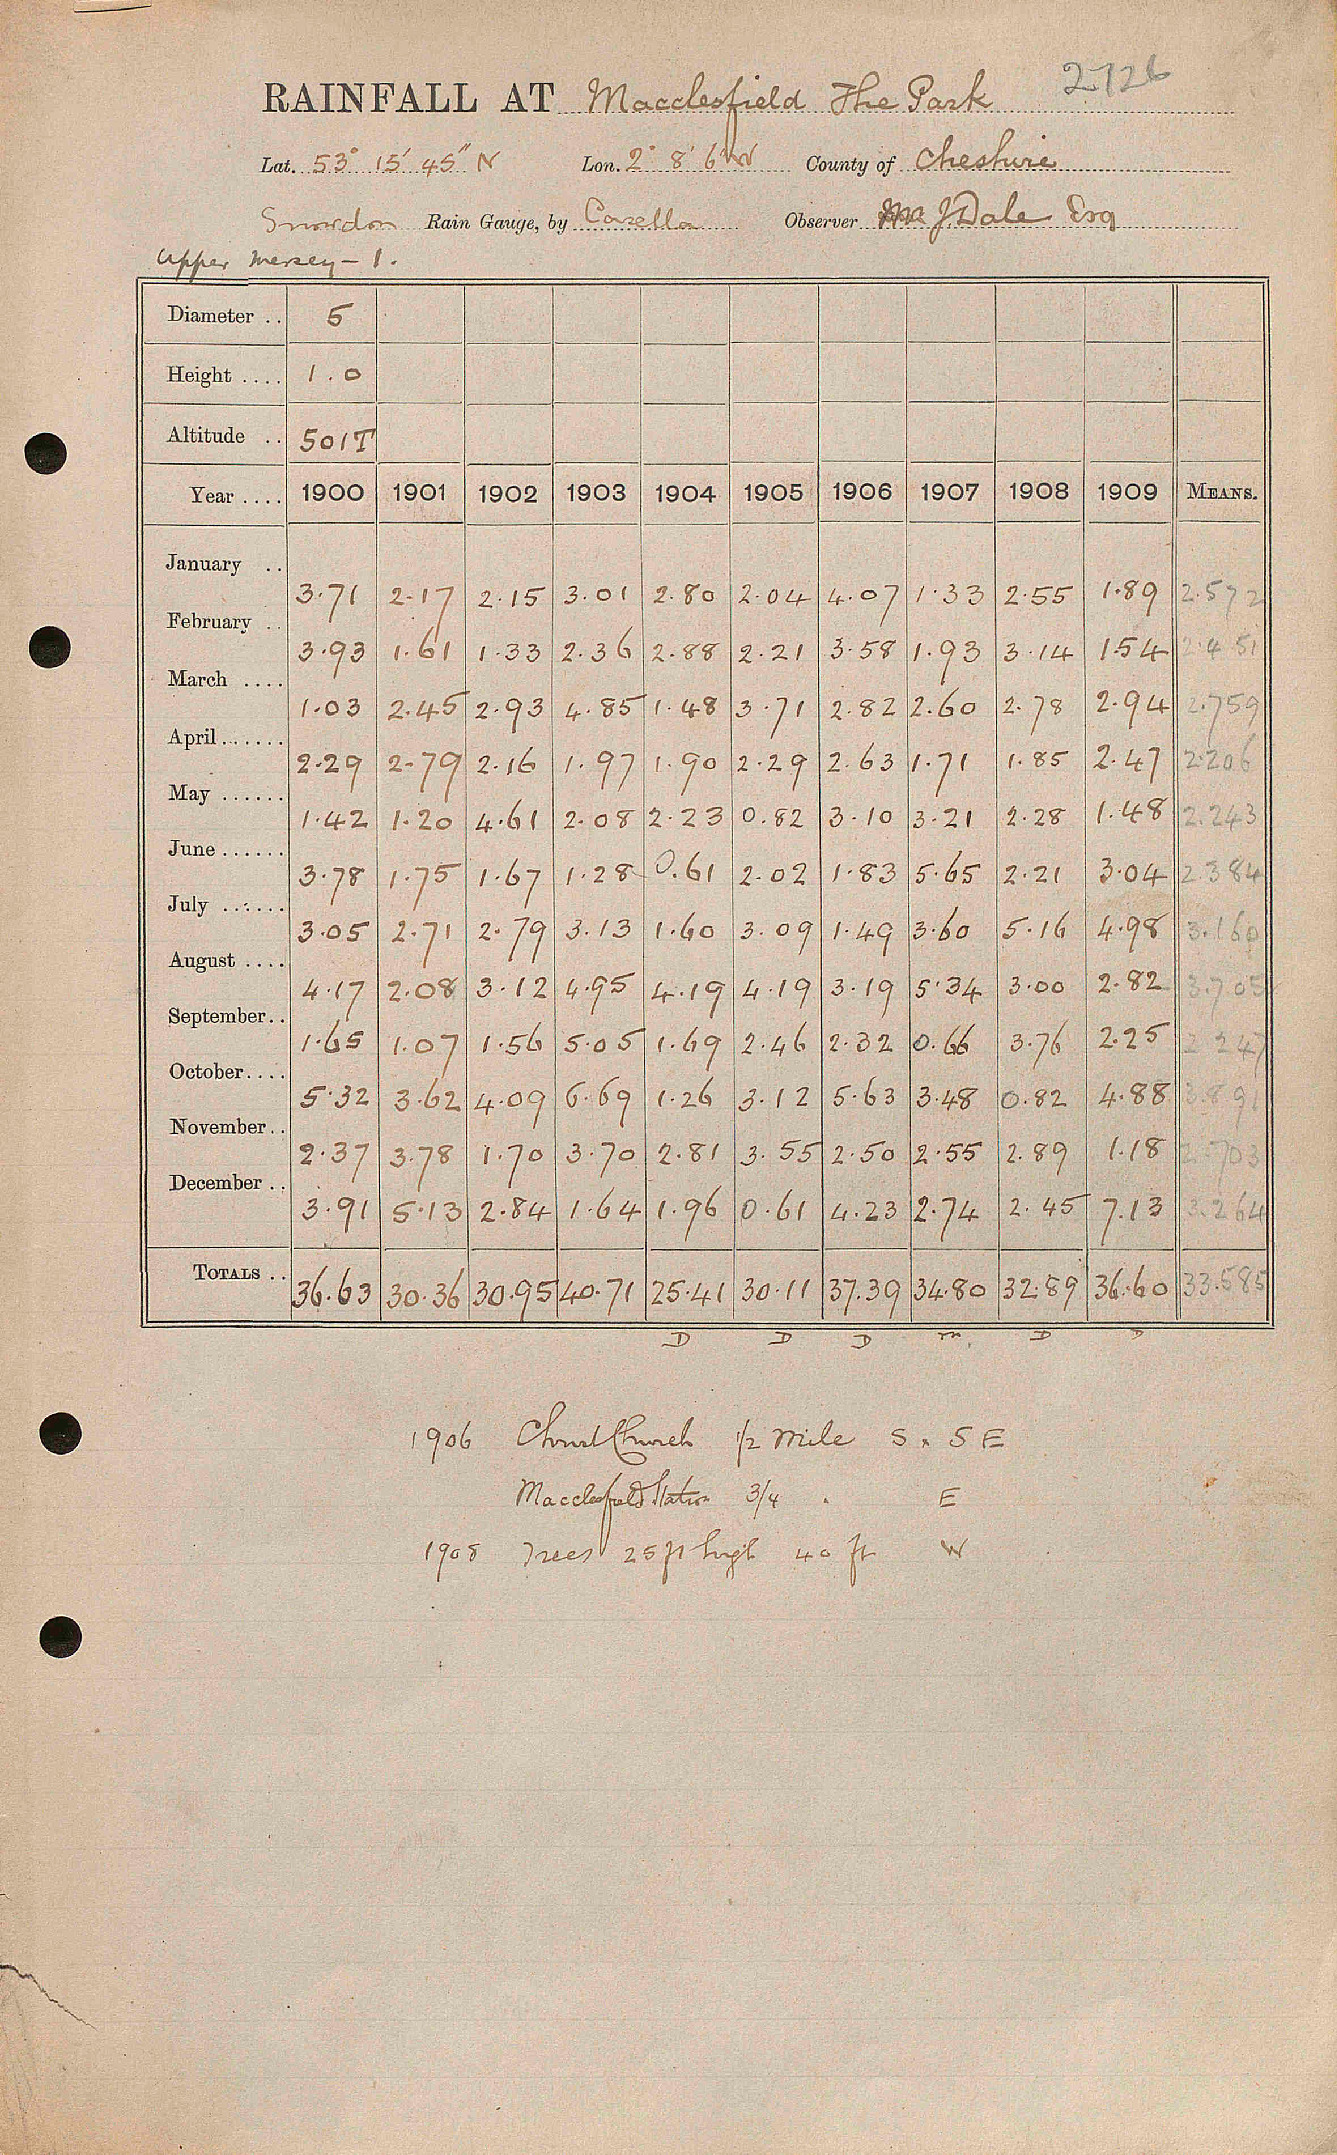 2726
RAINFALL AT Macclesfield The Park
Lat. 53° 15' 45" N Lon. 2° 8' 6" W County of Cheshire
Snowdon Rain Gauge, by Casella Observer J. Dale Esq
Upper Mersey - 1.
Diameter .. 5
Height .... 1.0
Altitude .. 501T
Year .... 1900 1901 1902 1903 1904 1905 1906 1907 1908 1909 MEANS.
January .. 3.71 2.17 2.15 3.01 2.80 2.04 4.07 1.33 2.55 1.89 2.572
February .. 3.93 1.61 1.33 2.36 2.88 2.21 3.58 1.93 3.14 1.54 2.451
March .... 1.03 2.45 2.93 4.85 1.48 3.71 2.82 2.60 2.78 2.94 2.759
April ...... 2.29 2.79 2.16 1.97 1.90 2.29 2.63 1.71 1.85 2.47 2.206
May ...... 1.42 1.20 4.61 2.08 2.23 0.82 3.10 3.21 2.28 1.48 2.243
June ...... 3.78 1.75 1.67 1.28 0.61 2.02 1.83 5.65 2.21 3.04 2.384
July ...... 3.05 2.71 2.79 3.13 1.60 3.09 1.49 3.60 5.16 4.98 3.160
August .... 4.17 2.08 3.12 4.95 4.19 4.19 3.19 5.34 3.00 2.82 3.705
September .. 1.65 1.07 1.56 5.05 1.69 2.46 2.32 0.66 3.76 2.25 2.247
October .... 5.32 3.62 4.09 6.69 1.26 3.12 5.63 3.48 0.82 4.88 3.891
November .. 2.37 3.78 1.70 3.70 2.81 3.55 2.50 2.55 2.89 1.18 2.703
December .. 3.91 5.13 2.84 1.64 1.96 0.61 4.23 2.74 2.45 7.13 3.264
TOTALS .. 36.63 30.36 30.95 40.71 25.41 30.11 37.39 34.80 32.89 36.60 33.585
D D D m. D D
1906 Christ Church 1/2 mile S. SE
Macclesfield Station 3/4 " E
1908 Trees 25 ft high 40 ft W